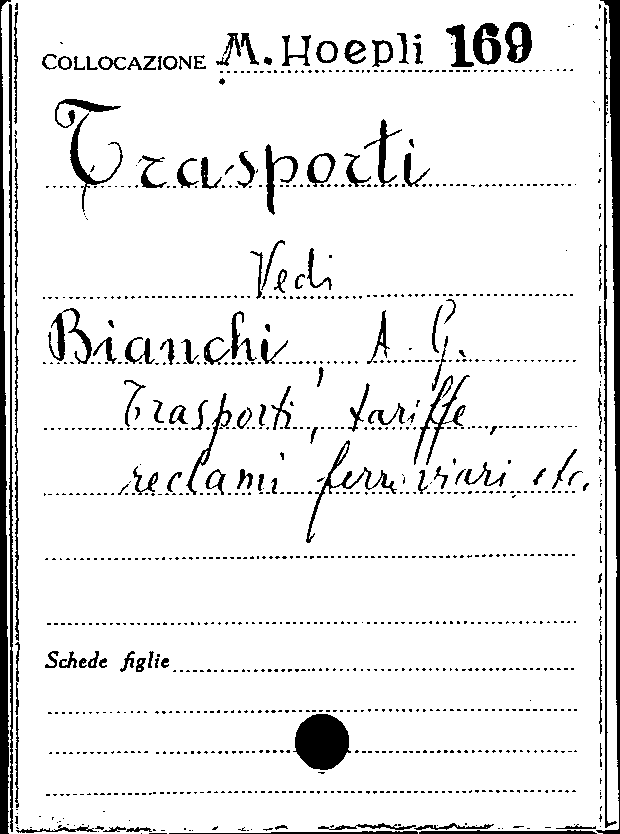 COLLOCAZIONE M. Hoepli 169
Trasporti
Vedi
Bianchi, A. G.
Trasporti, tariffe,
reclami ferroviari, etc.
Schede figlie